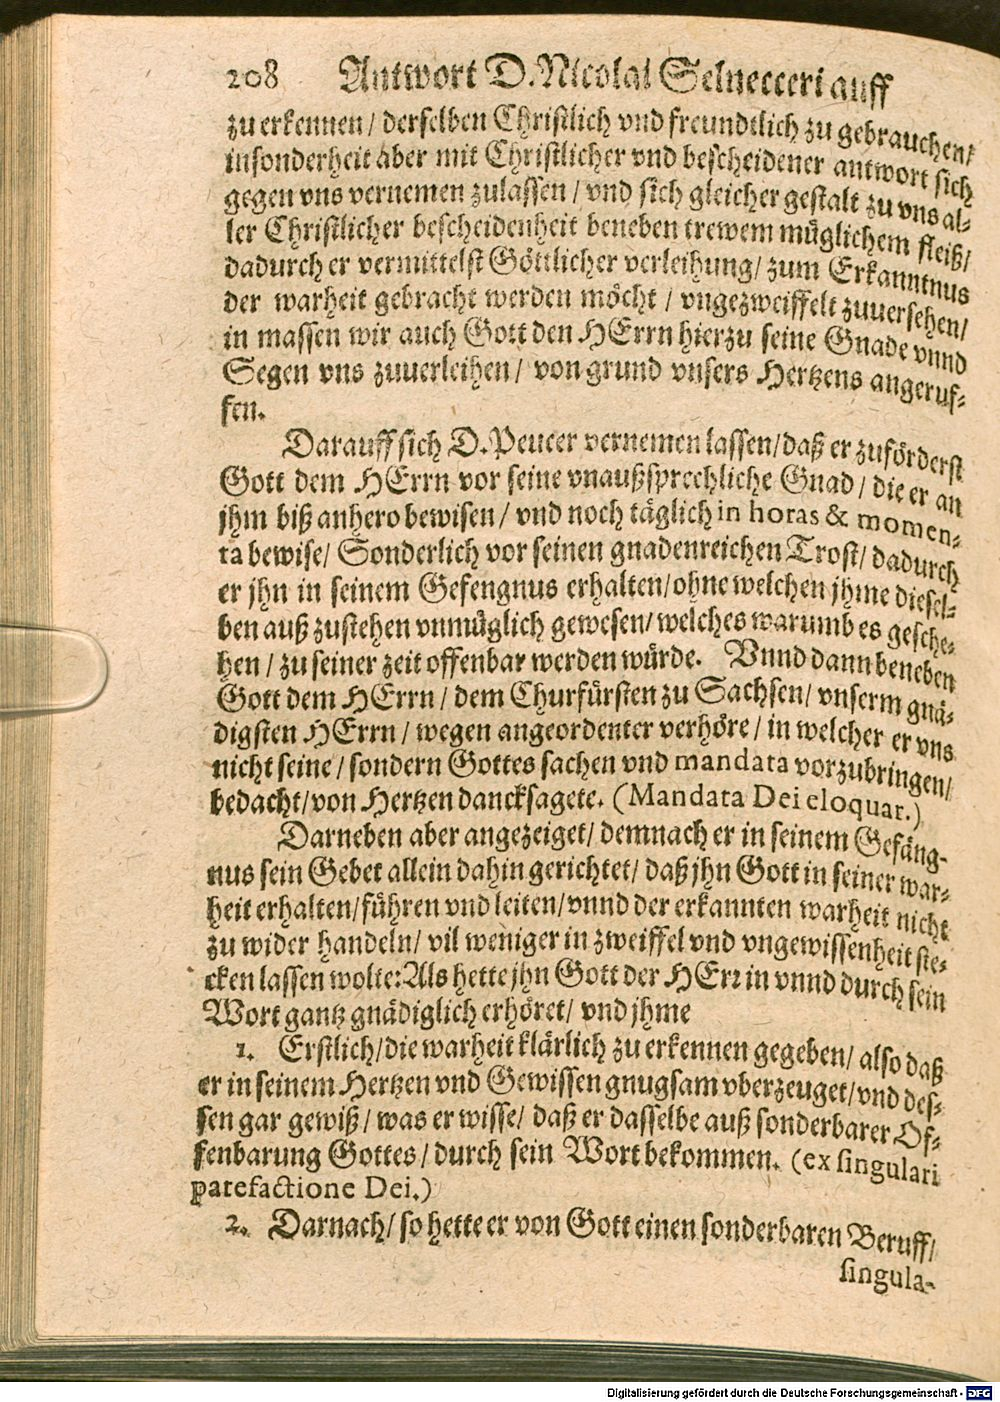 208 Antwort D. Nicolai Selnecceri auff
zu erkennen / derselben Christlich vnd freundtlich zu gebrauchen /
insonderheit aber mit Christlicher vnd bescheidener antwort sich
gegen vns vernemen zulassen / vnd sich gleicher gestalt zu vns al-
ler Christlicher bescheidenheit beneben trewem müglichem fleiß /
dadurch er vermittelst Göttlicher verleihung / zum Erkanntnus
der warheit gebracht werden möcht / vngezweiffelt zuuersehen /
in massen wir auch Gott den HErrn hierzu seine Gnade vnnd
Segen vns zuuerleihen / von grund vnsers Hertzens angeruf-
fen.
Darauff sich D. Peucer vernemen lassen / daß er zuförderst
Gott dem HErrn vor seine vnaußsprechliche Gnad / die er an
jhm biß anhero bewisen / vnd noch täglich in horas & momen-
ta bewise / Sonderlich vor seinen gnadenreichen Trost / dadurch
er jhn in seinem Gefengnus erhalten / ohne welchen jhme diesel-
ben auß zustehen vnmüglich gewesen / welches warumb es gesche-
hen / zu seiner zeit offenbar werden würde. Vnnd dann beneben
Gott dem HErrn / dem Churfürsten zu Sachsen / vnserm gnä-
digsten HErrn / wegen angeordenter verhöre / in welcher er vns
nicht seine / sondern Gottes sachen vnd mandata vorzubringen /
bedacht / von Hertzen dancksagete. (Mandata Dei eloquar.)
Darneben aber angezeiget / demnach er in seinem Gefäng-
nus sein Gebet allein dahin gerichtet / daß jhn Gott in seiner war-
heit erhalten / führen vnd leiten / vnnd der erkannten warheit nicht
zu wider handeln / vil weniger in zweiffel vnd vngewissenheit ste-
cken lassen wolte: Als hette jhn Gott der HErr in vnnd durch sein
Wort gantz gnädiglich erhöret / vnd jhme
1. Erstlich / die warheit klärlich zu erkennen gegeben / also daß
er in seinem Hertzen vnd Gewissen gnugsam vberzeuget / vnd des-
sen gar gewiß / was er wisse / daß er dasselbe auß sonderbarer Of-
fenbarung Gottes / durch sein Wort bekommen. (ex singulari
patefactione Dei.)
2. Darnach / so hette er von Gott einen sonderbaren Beruff /
singula-
Digitalisierung gefördert durch die Deutsche Forschungsgemeinschaft - DFG